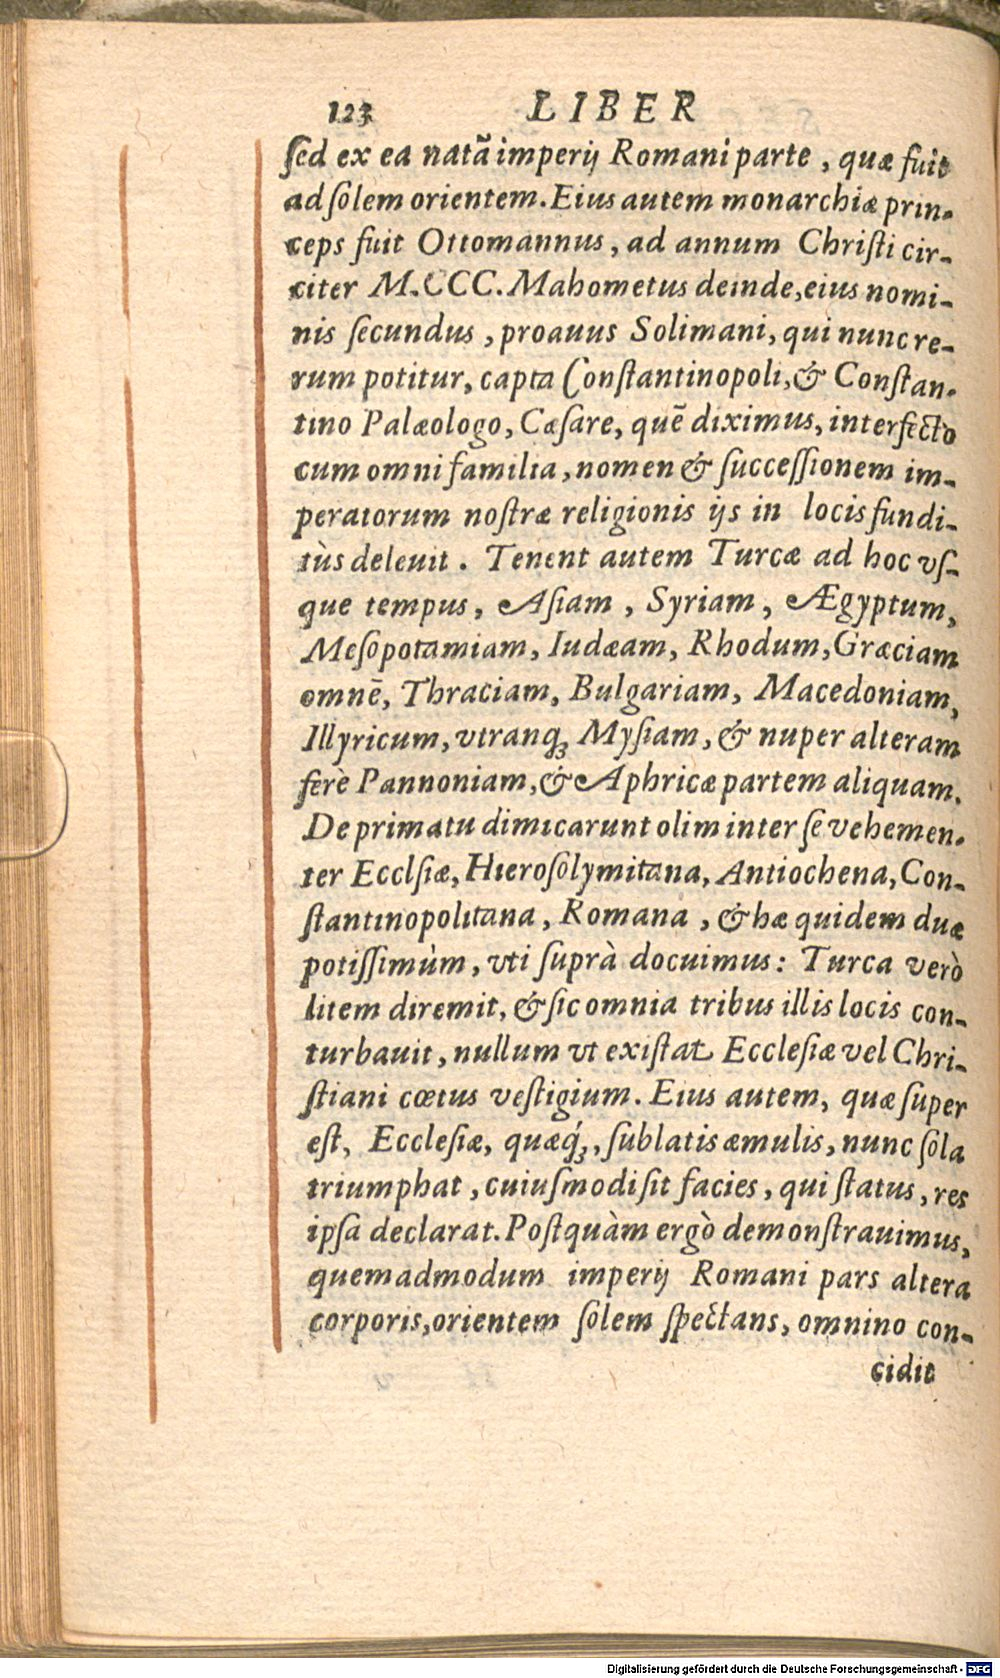 123 LIBER
ſed ex ea natã imperij Romani parte, quæ fuit
ad ſolem orientem. Eius autem monarchiæ prin-
ceps fuit Ottomannus, ad annum Chriſti cir-
citer M.CCC. Mahometus deinde, eius nomi-
nis ſecundus, proauus Solimani, qui nunc re-
rum potitur, capta Conſtantinopoli, & Conſtan-
tino Palæologo, Cæſare, quẽ diximus, interfecto
cum omni familia, nomen & ſucceſſionem im-
peratorum noſtræ religionis ijs in locis fundi-
tùs deleuit. Tenent autem Turcæ ad hoc vſ-
que tempus, Aſiam, Syriam, Ægyptum,
Meſopotamiam, Iudæam, Rhodum, Græciam
omnẽ, Thraciam, Bulgariam, Macedoniam,
Illyricum, vtranq; Myſiam, & nuper alteram
ferè Pannoniam, & Aphricæ partem aliquam.
De primatu dimicarunt olim inter ſe vehemen-
ter Ecclſiæ, Hieroſolymitana, Antiochena, Con-
ſtantinopolitana, Romana, & hæ quidem duæ
potiſſimùm, vti ſuprà docuimus: Turca verò
litem diremit, & ſic omnia tribus illis locis con-
turbauit, nullum vt exiſtat Eccleſiæ vel Chri-
ſtiani cœtus veſtigium. Eius autem, quæ ſuper
eſt, Eccleſiæ, quæq́;, ſublatis æmulis, nunc ſola
triumphat, cuiuſmodi ſit facies, qui ſtatus, res
ipſa declarat. Poſtquàm ergò demonſtrauimus,
quemadmodum imperij Romani pars altera
corporis, orientem ſolem ſpectans, omnino con-
cidit
Digitalisierung gefördert durch die Deutsche Forschungsgemeinschaft - DFG